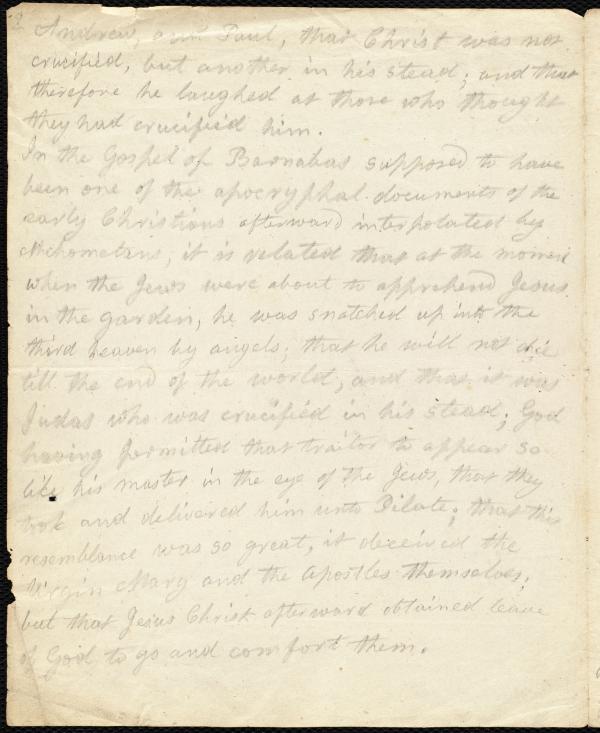 2
Andrew, and Paul, that Christ was not
crucified, but another in his stead; and that
therefore he laughed at those who thought
they had crucified him.
In the Gospel of Barnabas supposed to have
been one of the apocryphal documents of the
early Christians afterward interpolated by
Mahometans, it is related that at the moment
when the Jews were about to apprehend Jesus
in the garden, he was snatched up into the
third heaven by angels; that he will not die
till the end of the world, and that it was
Judas who was crucified in his stead; God
having permitted that traitor to appear so
like his master in the eye of the Jews, that they
took and delivered him unto Pilate; that this
resemblance was so great, it deceived the
Virgin Mary and the Apostles themselves;
but that Jesus Christ afterward obtained leave
of God to go and comfort them.